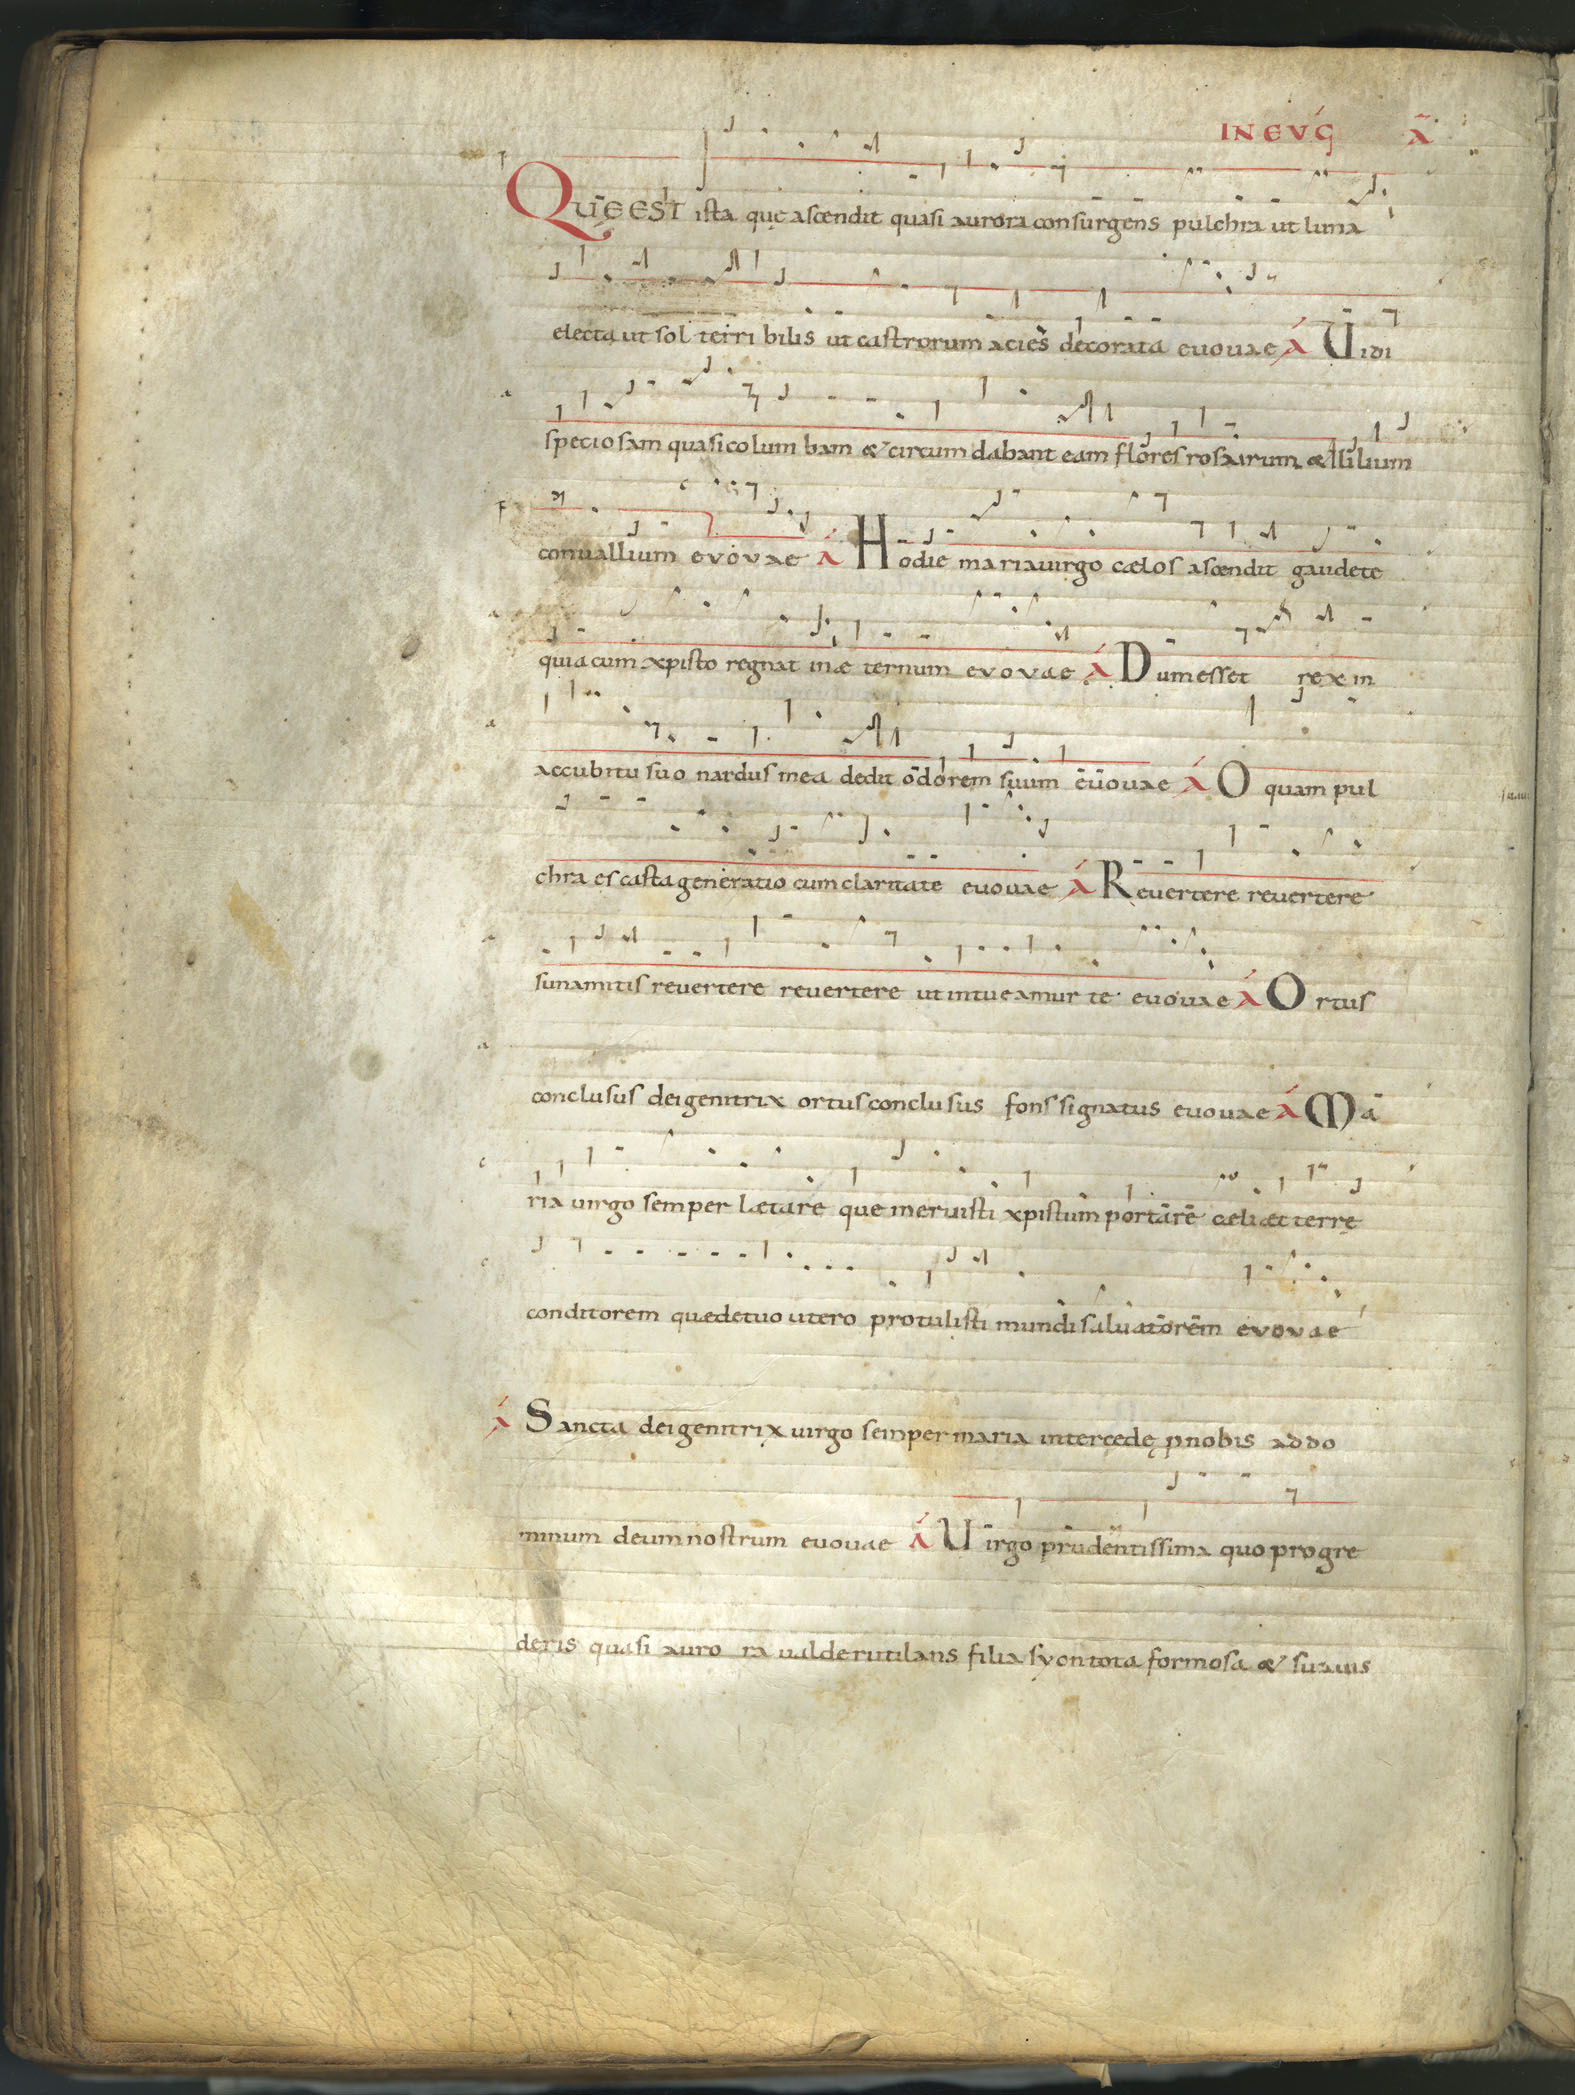 IN EVG̃ Ã
QUĘ EST ista quę ascendit quasi aurora consurgens pulchra ut luna
electa ut sol terribilis ut castrorum acies decorata euouae Ã Uidi
speciosam quasi columbam & circumdabant eam flores rosarum & lilium
conuallium evovae Ã Hodie maria uirgo cælos ascendit gaudete
quia cum xpisto regnat in æternum evovae Ã Dum esset rex in
accubitu suo nardus mea dedit odorem suum euouae Ã O quam pul
chra es casta generatio cum claritate euouae Ã Revertere revertere
sunamitis revertere revertere ut intueamur te euouae Ã Ortus
conclusus dei genitrix ortus conclusus fons signatus euouae Ã Ma
ria uirgo semper lætare que meruisti xpistum portare cæli et terrę
conditorem quæ de tuo utero protulisti mundi saluatorem evovae
Ã Sancta dei genitrix uirgo semper maria intercedę pnobis ad do
minum deum nostrum euouae Ã Uirgo prudentissima quo progre
deris quasi aurora ualde rutilans filia syon tota formosa & suauis